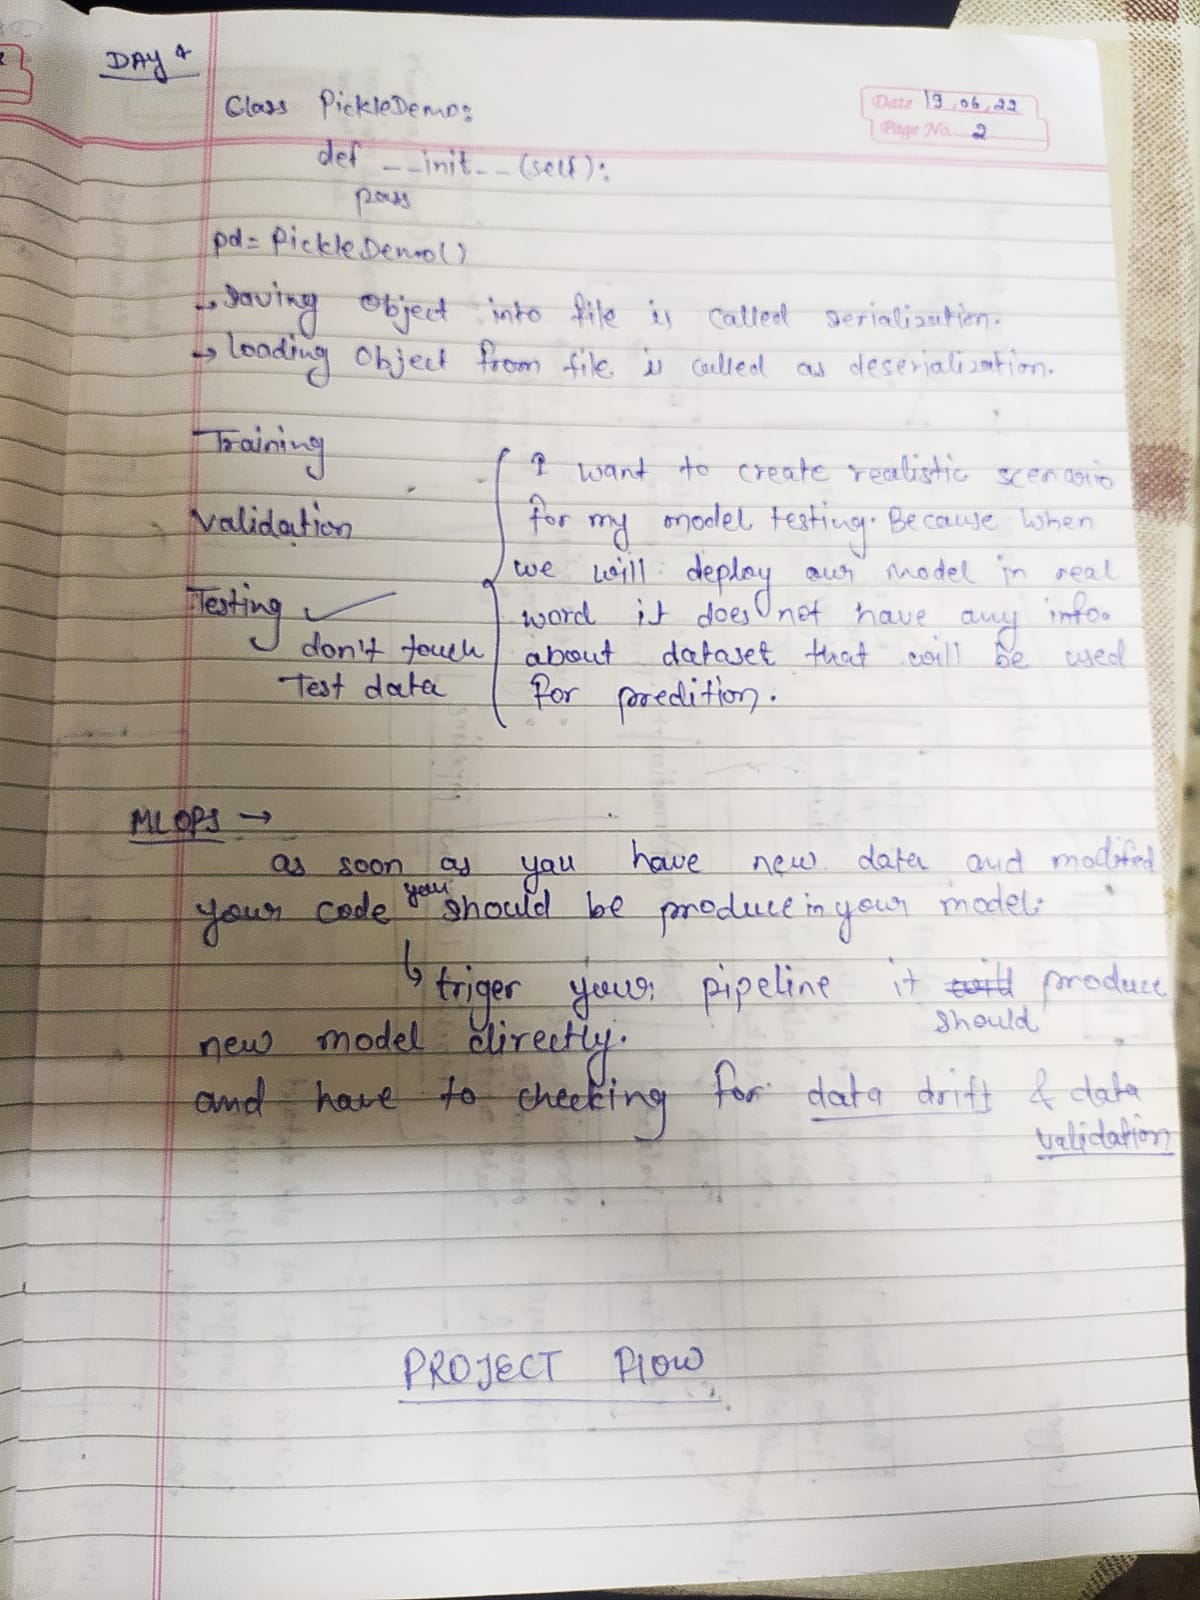 DAY 4
Date 19.06.22
Page No. 2
Class PickleDemo:
def __init__(self):
pass
pd = PickleDemo()
→ Saving Object into file is called serialization.
→ loading Object from file is called as deserialization.
Training
Validation
Testing ✓
↳ don't touch
Test data
I want to create realistic scenario
for my model testing. Because when
we will deploy our model in real
word it does not have any info.
about dataset that will be used
for predition.
MLOPS →
as soon as you have new data and modified
your code you should be produce in your model.
↳ triger your pipeline it should produce
new model directly.
and have to checking for data drift & data
validation
PROJECT Flow